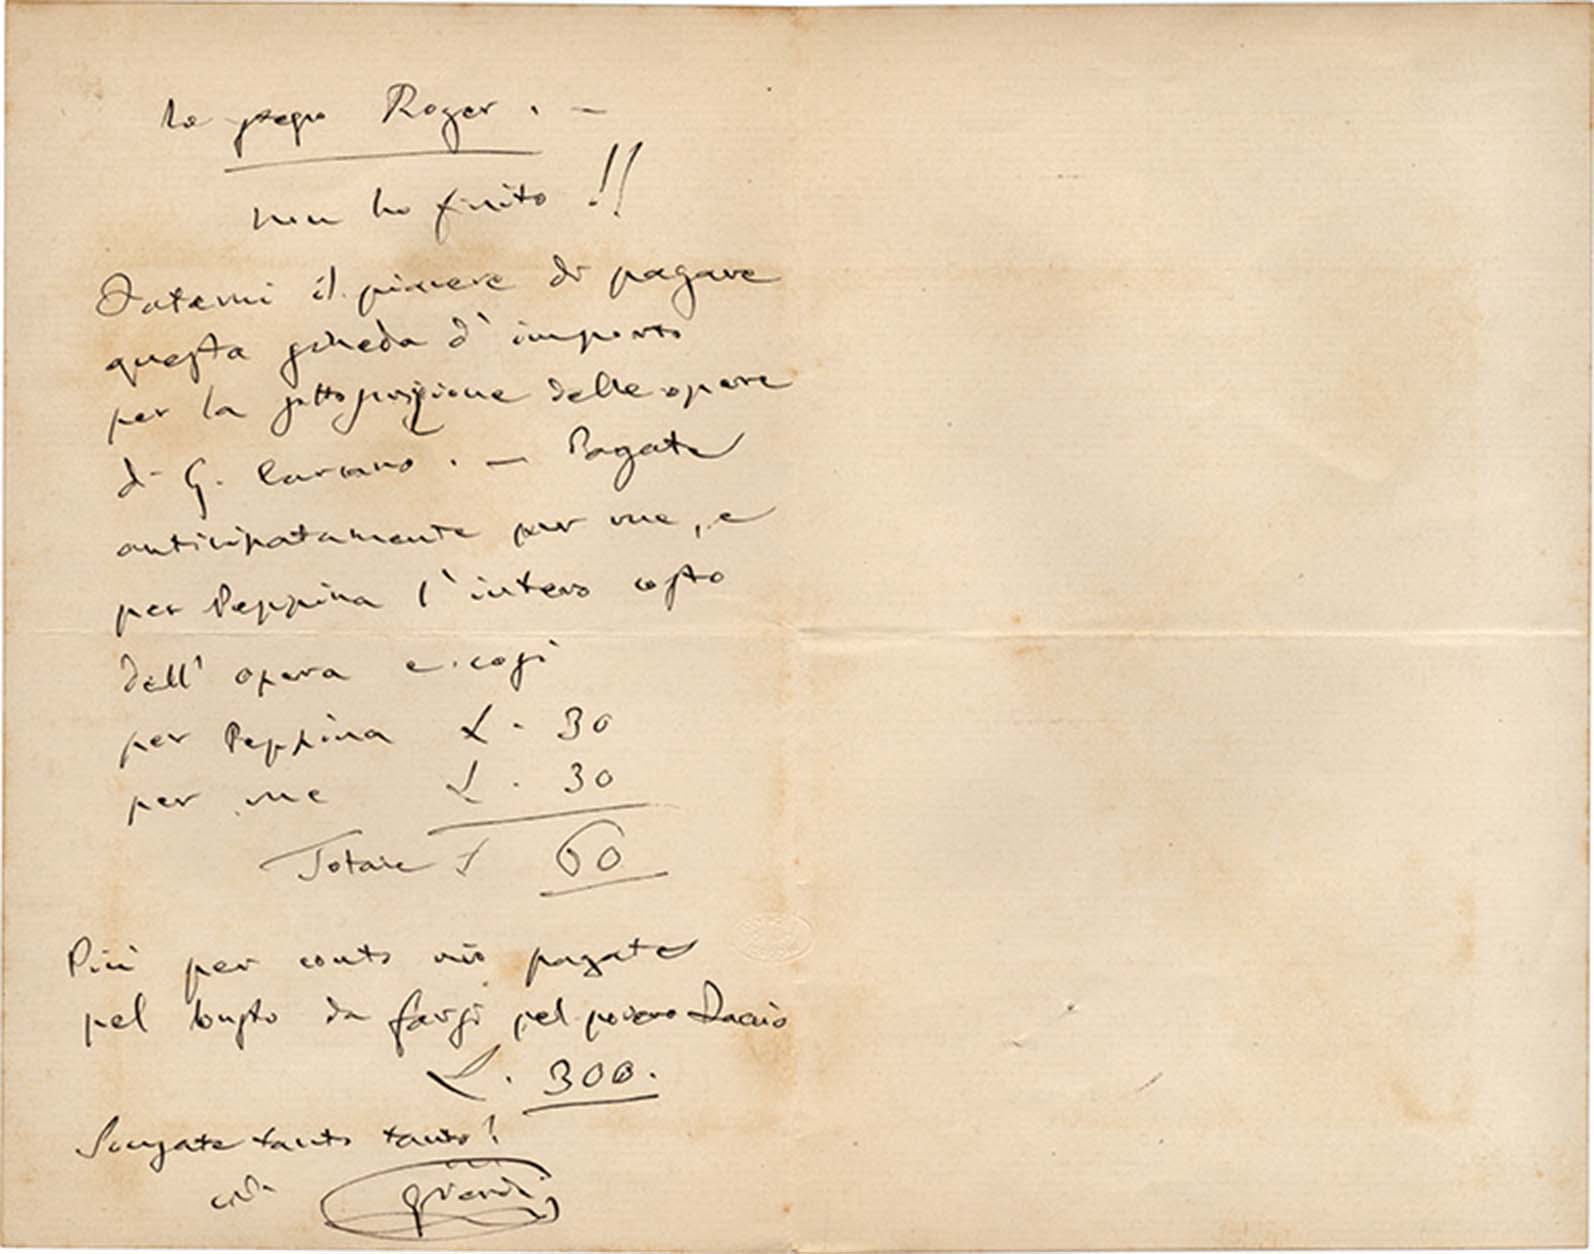 lo stesso Roger . —
non ho finito !!
Fatemi il piacere di pagare
questa scheda d'importo
per la sottoscrizione delle opere
di G. Carcano . — Pagate
anticipatamente per me, e
per Peppina l'intero costo
dell' opera e così
per Peppina L. 30
per me L. 30
Totale L 60
Più per conto mio pagate
pel busto da farsi pel povero Daccio
L. 300.
Scusate tanto tanto!
GVerdi